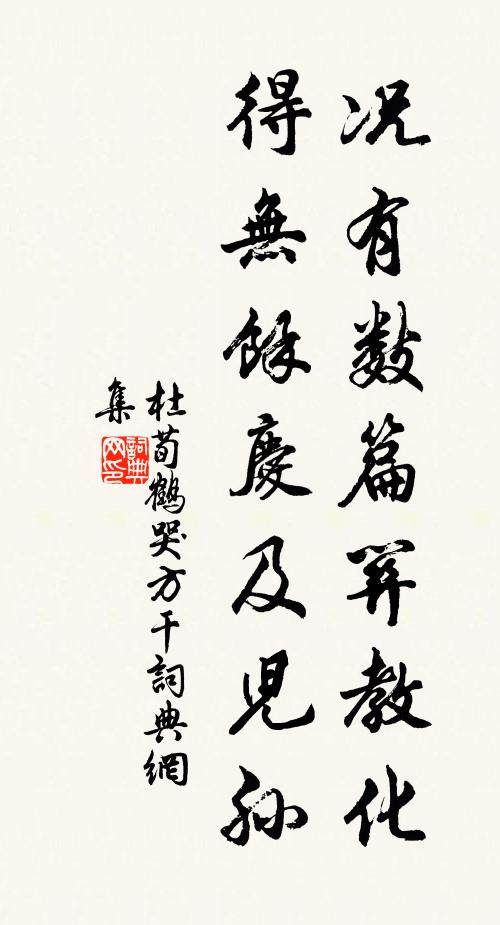 况有數篇關教化
得無餘慶及兒孫
杜荀鶴哭方干詞典網
集
詞典
网印